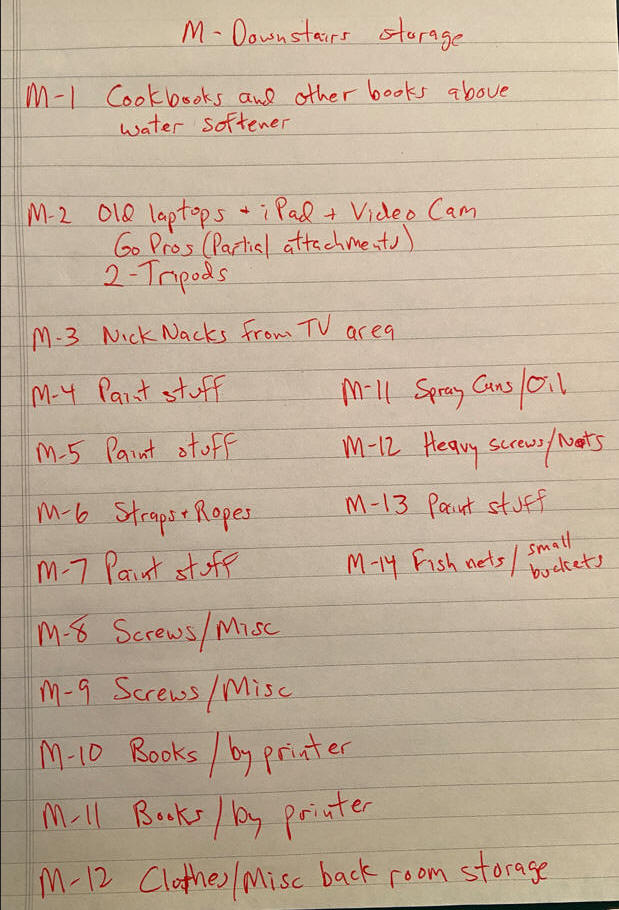 M-Downstairs storage
M-1 Cookbooks and other books above
water softener
M-2 Old laptops + iPad + Video Cam
Go Pros (Partial attachments)
2-Tripods
M-3 Nick Nacks from TV area
M-4 Paint stuff
M-5 Paint stuff
M-6 Straps + Ropes
M-7 Paint stuff
M-8 Screws/Misc
M-9 Screws/Misc
M-10 Books/by printer
M-11 Books/by printer
M-12 Clothes/Misc back room storage
M-11 Spray Cans/Oil
M-12 Heavy screws/Nuts
M-13 Paint stuff
M-14 Fish nets/small
buckets